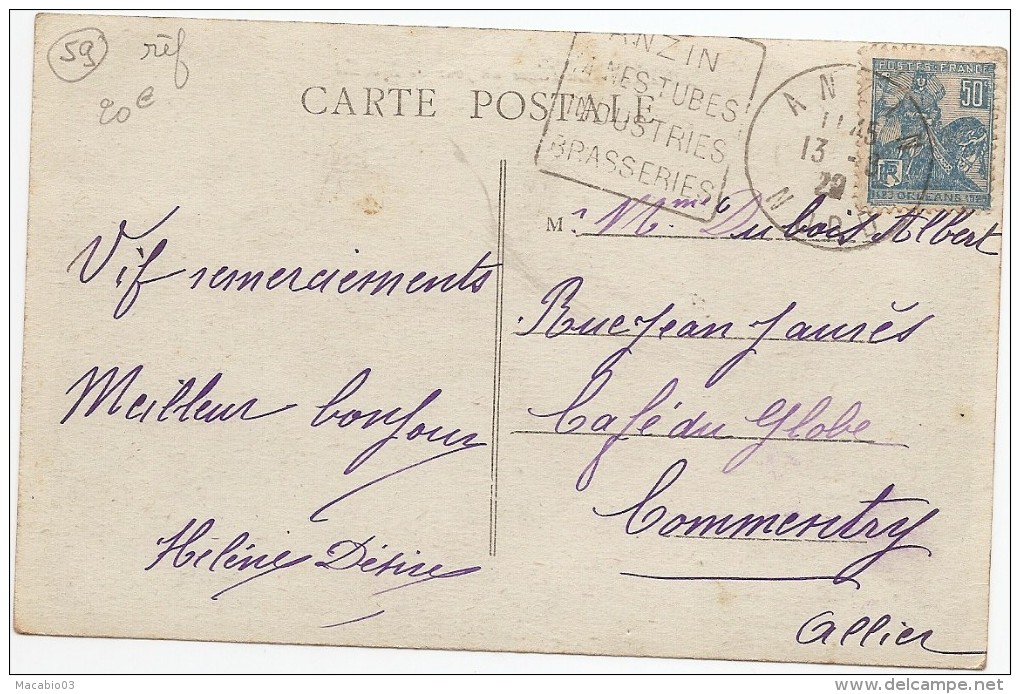 59
réf
20€
CARTE POSTALE
ANZIN
MINES-TUBES
INDUSTRIES
BRASSERIES
ANZIN
11 45
13 -8
29
NORD
POSTES-FRANCE
50c
RF
ORLEANS
M
Mme Dubois Albert
Rue Jean Jaurès
Café du Globe
Commentry
Allier
Vif remerciements
Meilleur bonjour
Hélène Désiré
Macabio03
www.delcampe.net